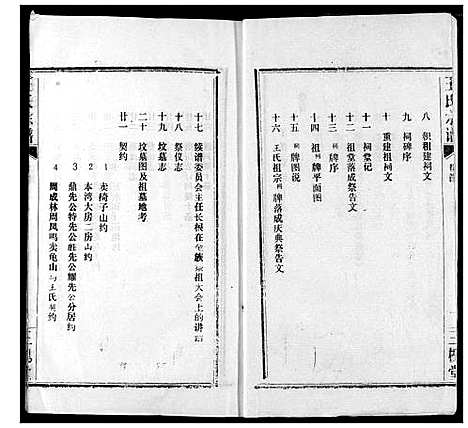 王氏宗譜
八 积租建祠文
九 祠碑序
十 重建祠文
十一 祠堂记
十二 祖堂落成祭告文
十三 牌序
十四 祖牌平面图
十五 牌图说
十六 王氏祖宗牌落成庆典祭告文
三槐堂
十七 续谱委员会主任长根在全族祭祖大会上的讲话
十八 祭仪志
十九 坟墓志
二十 坟墓图及祖墓地考
廿一 契约
1 卖椅子山约
2 本湾大房二房山约
3 鼎先公特先公胜先公耀先公分居约
4 周成林周凤鸣卖龟山与王氏约